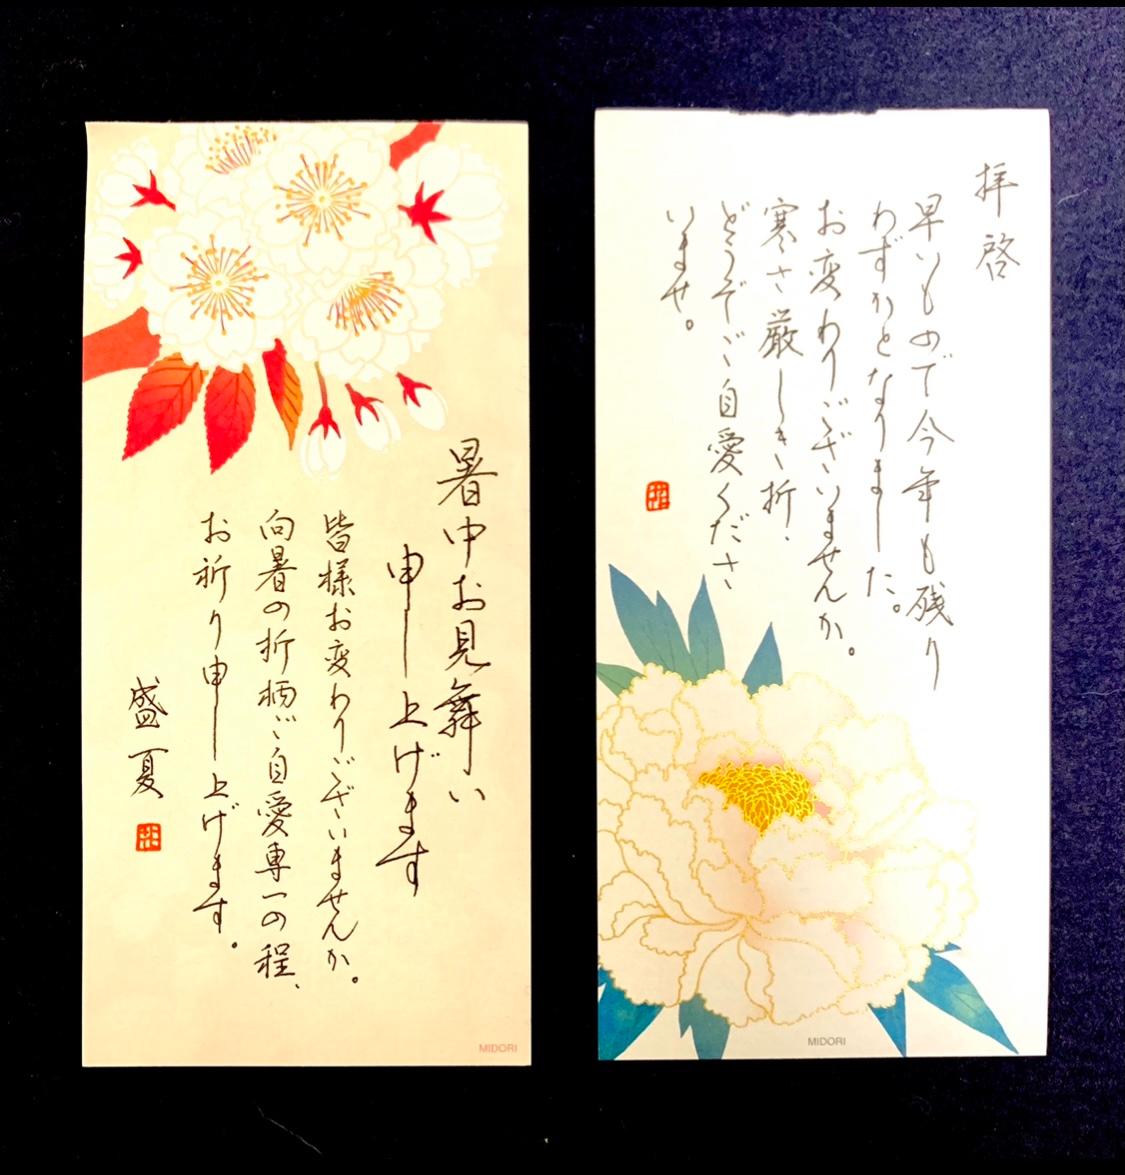 拝啓
早いもので今年も残り
わずかとなりました。
お変わりございませんか。
寒さ厳しき折、
どうぞご自愛くださ
いませ。
MIDORI
暑中お見舞い
申し上げます
皆様お変わりございませんか。
向暑の折柄ご自愛専一の程、
お祈り申し上げます。
盛夏
MIDORI